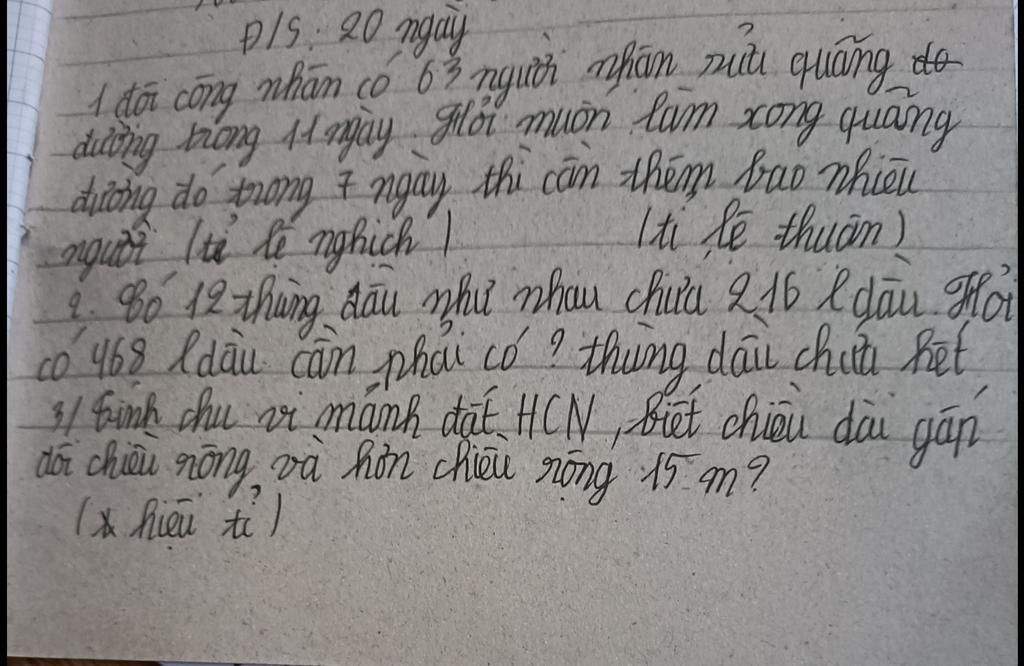 Đ/S: 20 ngày
1 đội công nhân có 63 người nhận sửa quãng đo
đường trong 11 ngày. Hỏi muốn làm xong quãng
đường đó trong 7 ngày thì cần thêm bao nhiêu
người (tỉ lệ nghịch) (tỉ lệ thuận)
2. Có 12 thùng dầu như nhau chứa 216 l dầu. Hỏi
có 468 l dầu cần phải có ? thùng dầu chứa hết
3/ Tính chu vi mảnh đất HCN, biết chiều dài gấp
đôi chiều rộng và hơn chiều rộng 15 m?
(x hiệu tỉ)